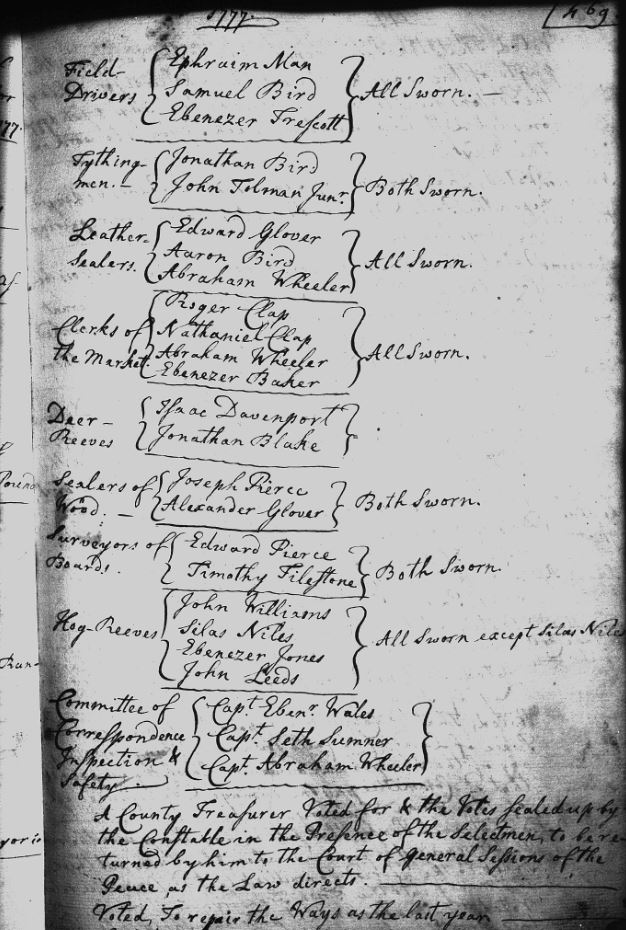 1777.
469
Field-
Drivers
Ephraim Man
Samuel Bird
Ebenezer Trescott
All Sworn. —
Tything-
men. —
Jonathan Bird
John Tolman Junr.
Both Sworn.
Leather-
Sealers.
Edward Glover
Aaron Bird
Abraham Wheeler
All Sworn.
Clerks of
the Market.
Roger Clap
Nathaniel Clap
Abraham Wheeler
Ebenezer Baker
All Sworn.
Deer-
Reeves
Isaac Davenport
Jonathan Blake
Sealers of
Wood. —
Joseph Pierce
Alexander Glover
Both Sworn.
Surveyors of
Boards.
Edward Pierce
Timothy Tileston
Both Sworn.
Hog-Reeves
John Williams
Silas Niles
Ebenezer Jones
John Leeds
All Sworn except Silas Niles
Committee of
Correspondence
Inspection &
Safety
Capt. Ebenr. Wales
Capt. Seth Sumner
Capt. Abraham Wheeler
A County Treasurer Voted for & the Votes sealed up by
the Constable in the Presence of the Selectmen, to be re-
turned by him to the Court of General Sessions of the
Peace, as the Law directs.
Voted, To repair the Ways as the last year